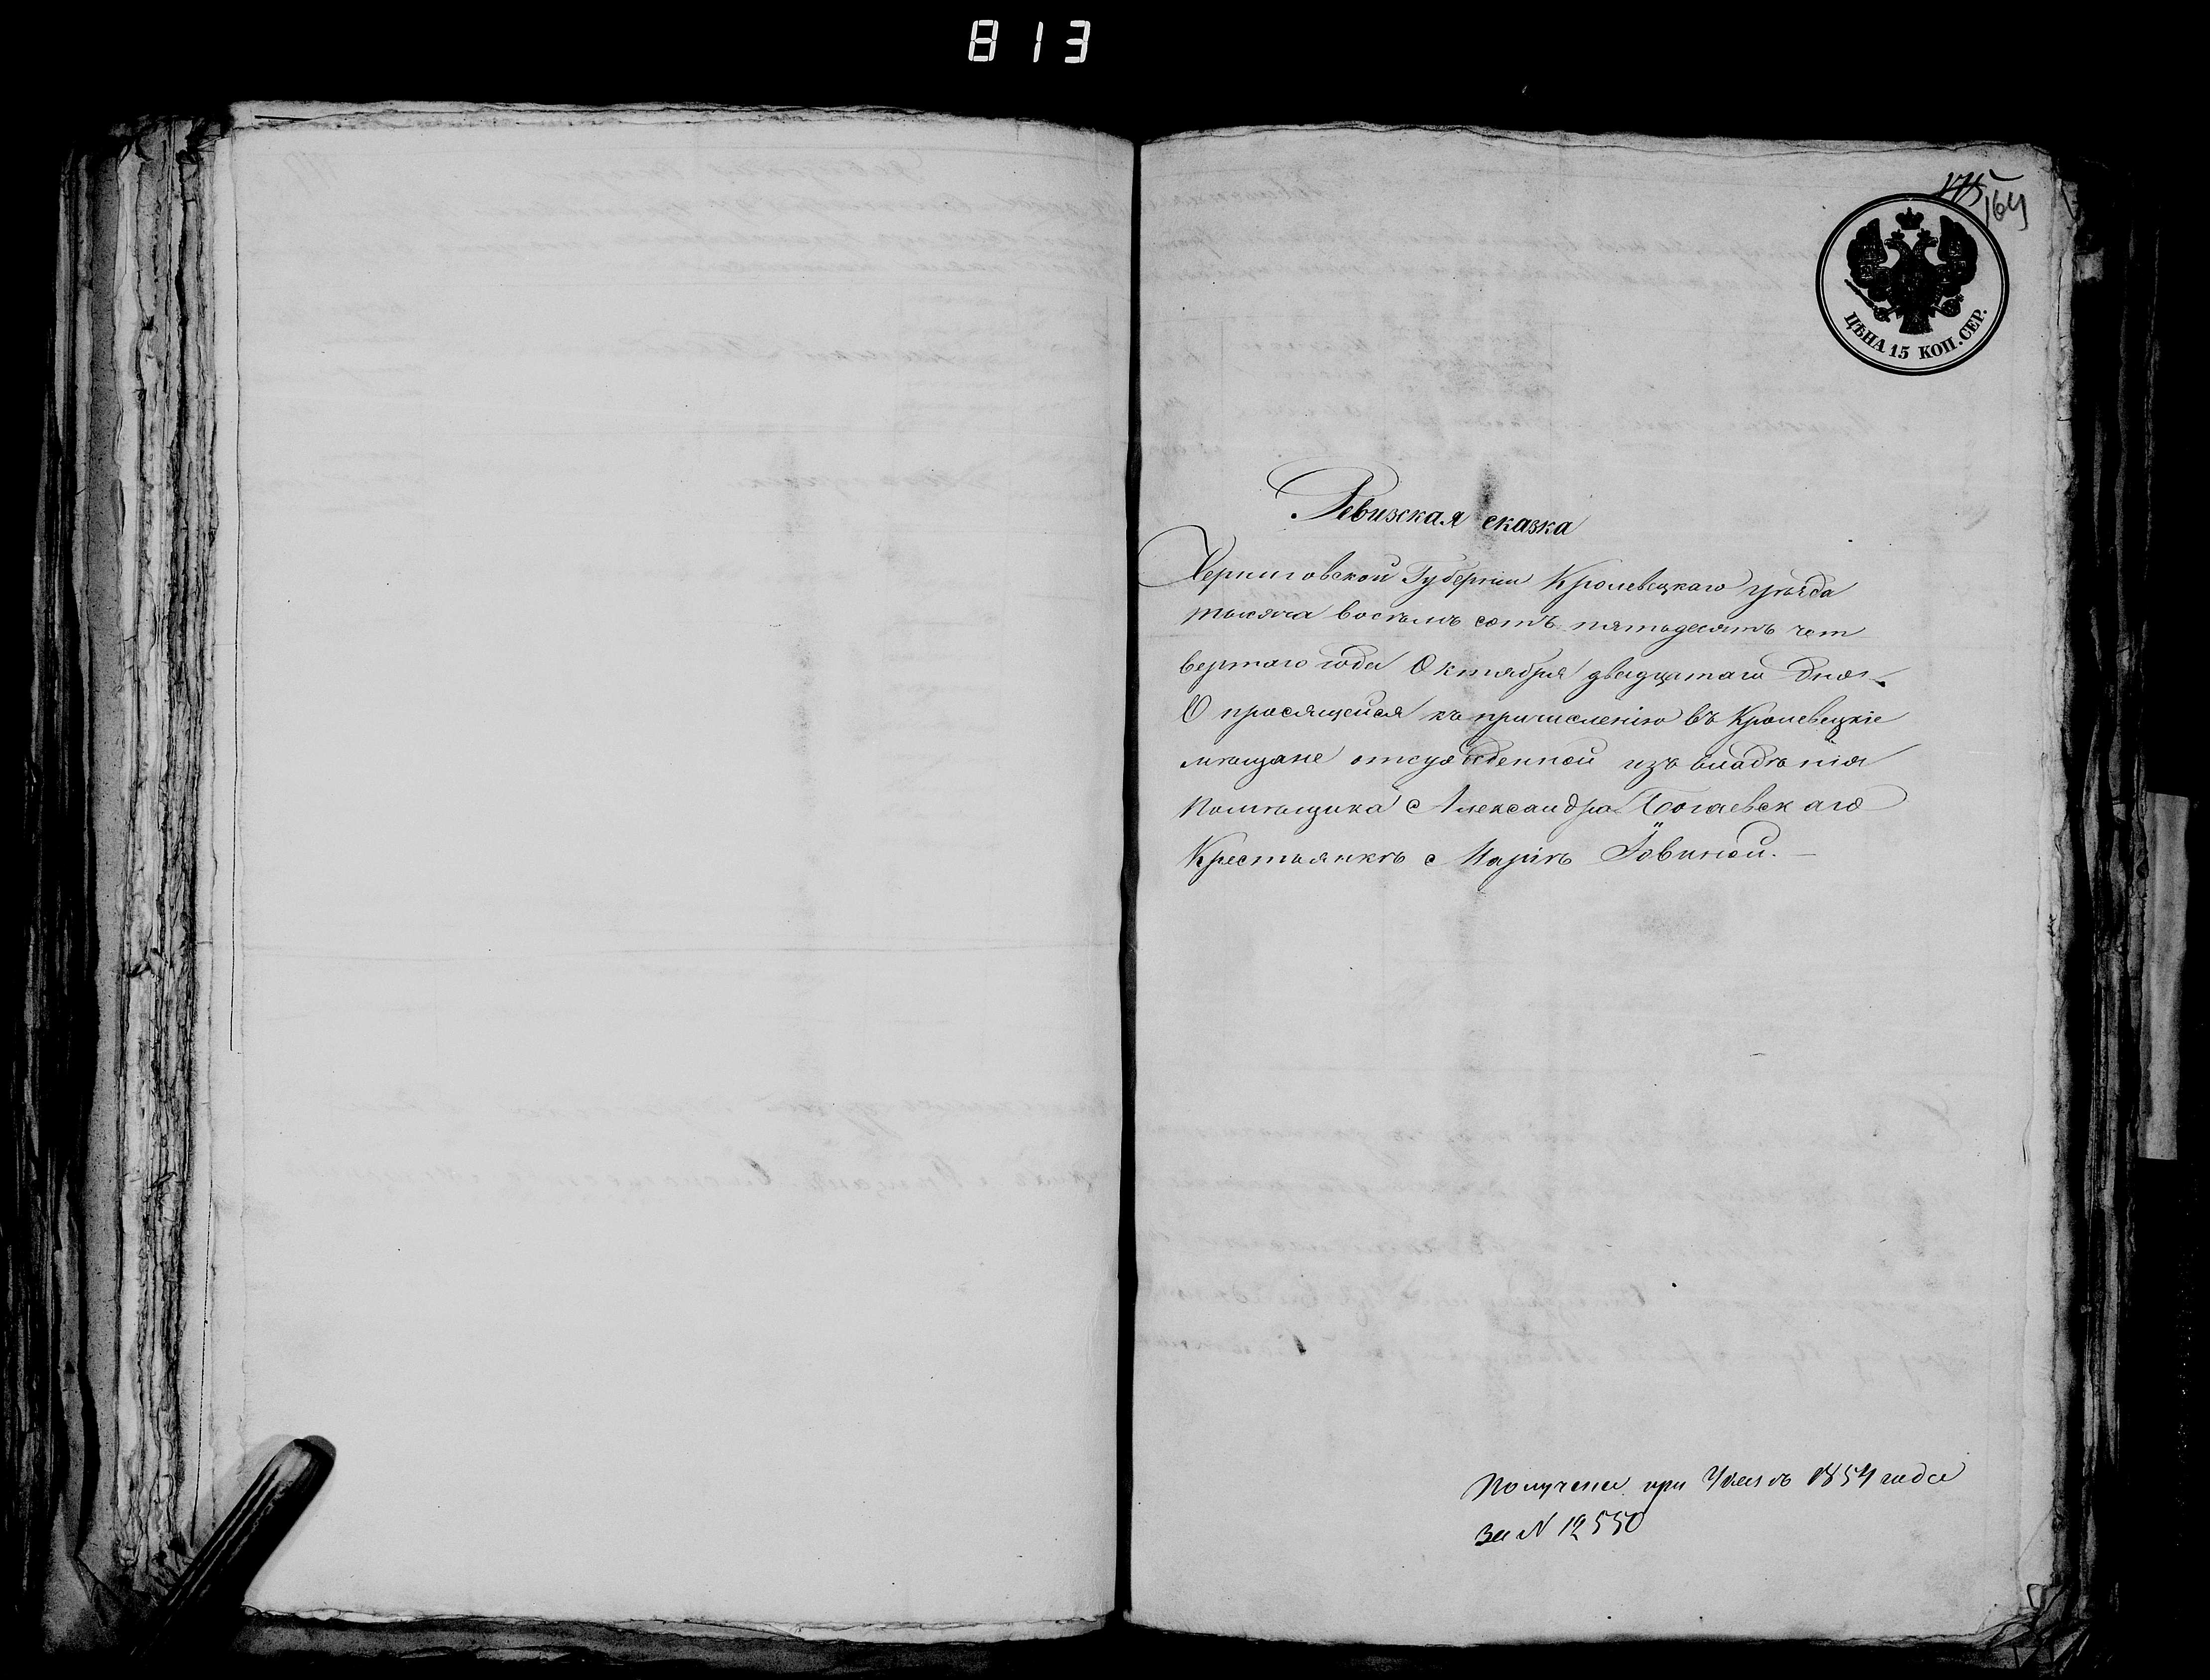 813
175
164
ЦѢНА 15 КОП. СЕР.
Ревизская сказка
Черниговской Губернии Кролевецкаго уѣзда
тысяча восемь сотъ пятьдесятъ чет
вертаго года Октября двадцатаго дня.
О просящейся къ причисленію въ Кролевецкіе
мѣщане отсужденной изъ владѣнія
Помѣщика Александра Богаевскаго
Крестьянкѣ Маріѣ Іовиной. —
Получена при Указѣ 1854 года
за N 12550